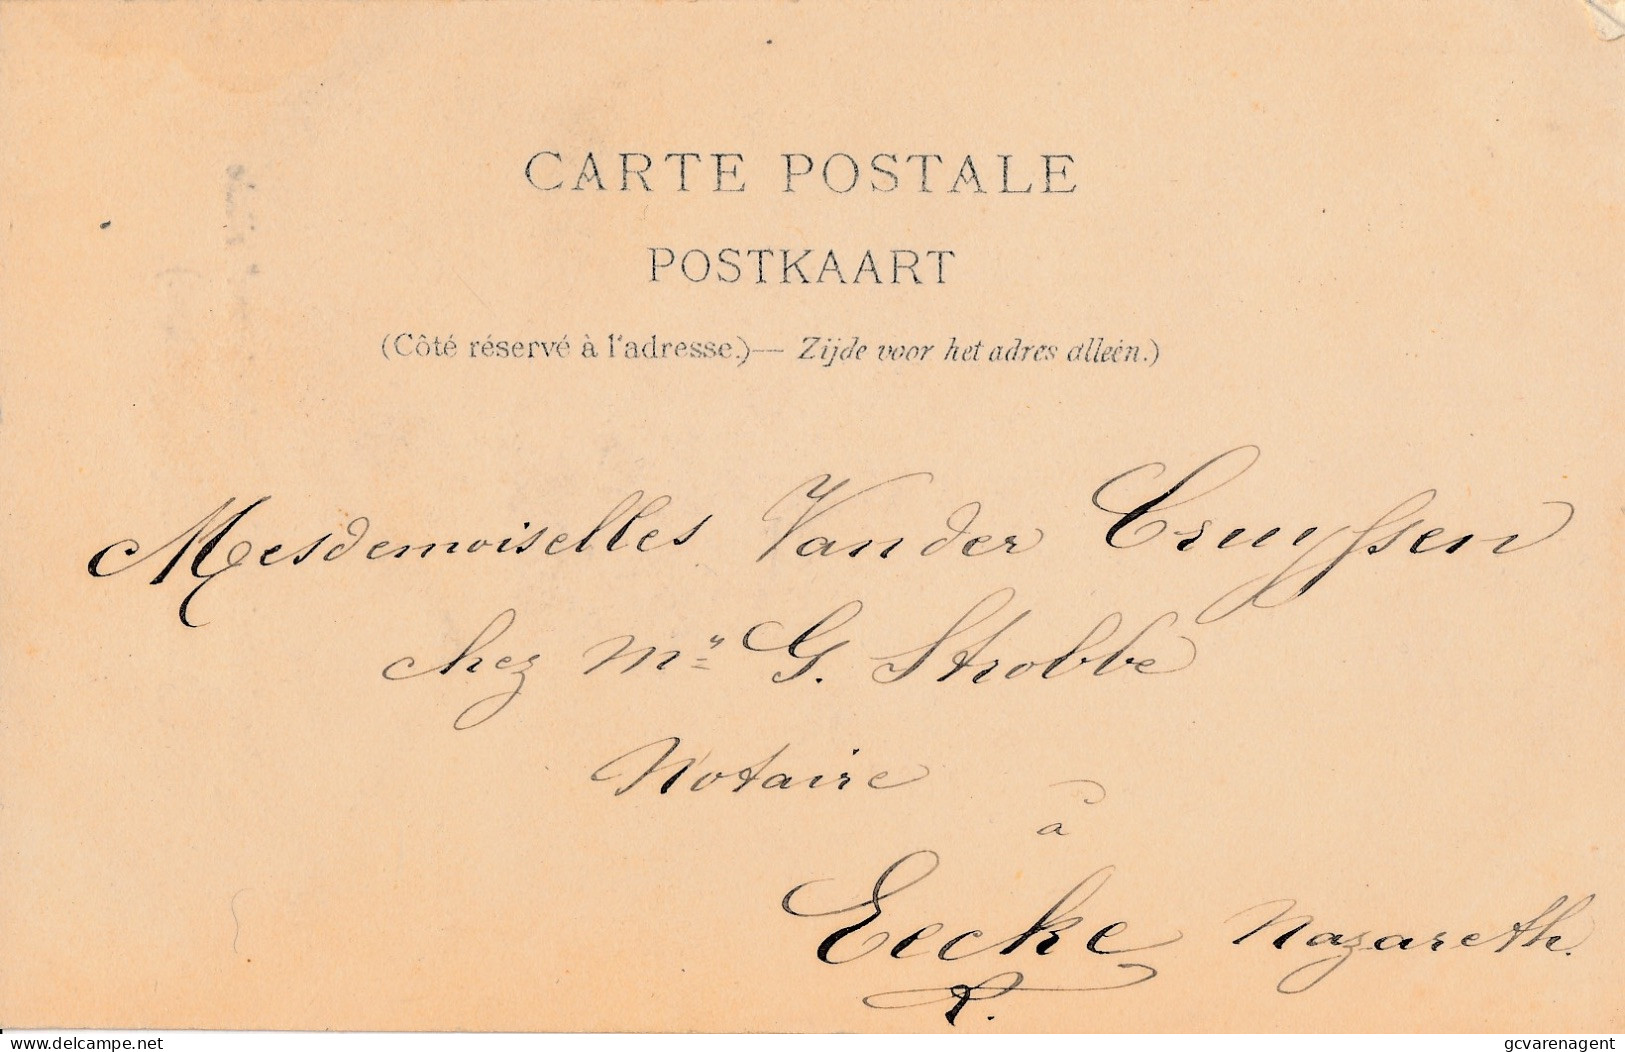 CARTE POSTALE
POSTKAART
(Côté réservé à l'adresse.)— Zijde voor het adres alleén.)
Mesdemoiselles Van der Cruyssen
chez Mr G. Strobbe
Notaire
à
Eecke Nazareth.
delcampe.net
gcvarenagent